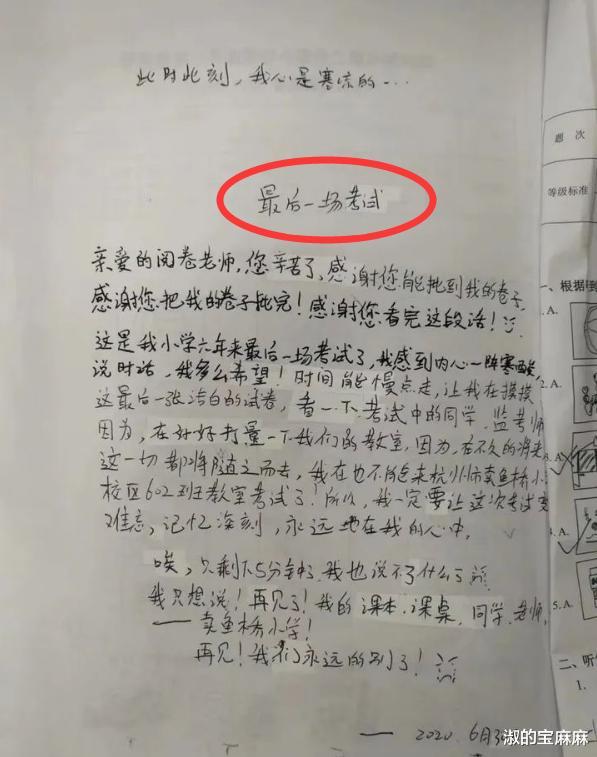 此时此刻，我心是寒凉的…
最后一场考试
亲爱的阅卷老师，您辛苦了，感谢您能批到我的卷子，
感谢您把我的卷子批完！感谢您看完这段话！
这是我小学六年来最后一场考试了，我感到内心一阵寒酸，
说时话，我多么希望！时间能慢点走，让我在摸摸
这最后一张洁白的试卷，看一下考试中的同学，监考师
因为，在好好打量一下我们的教室，因为，在不久的将来
这一切都将随之而去，我在也不能来杭州市卖鱼桥小
校区602班教室考试了！所以，我一定要让这次考试变
难忘，记忆深刻，永远地在我的心中。
唉，只剩下5分钟了，我也说不了什么了
我只想说！再见了！我的课本，课桌，同学，老师，
——卖鱼桥小学！
再见！我们永远的别了！
——2020.6月30
题 次
等级标准
一、根据
1.A.
2.A.
3.A.
4.A.
5.A.
二、听
1.
淑的宝麻麻